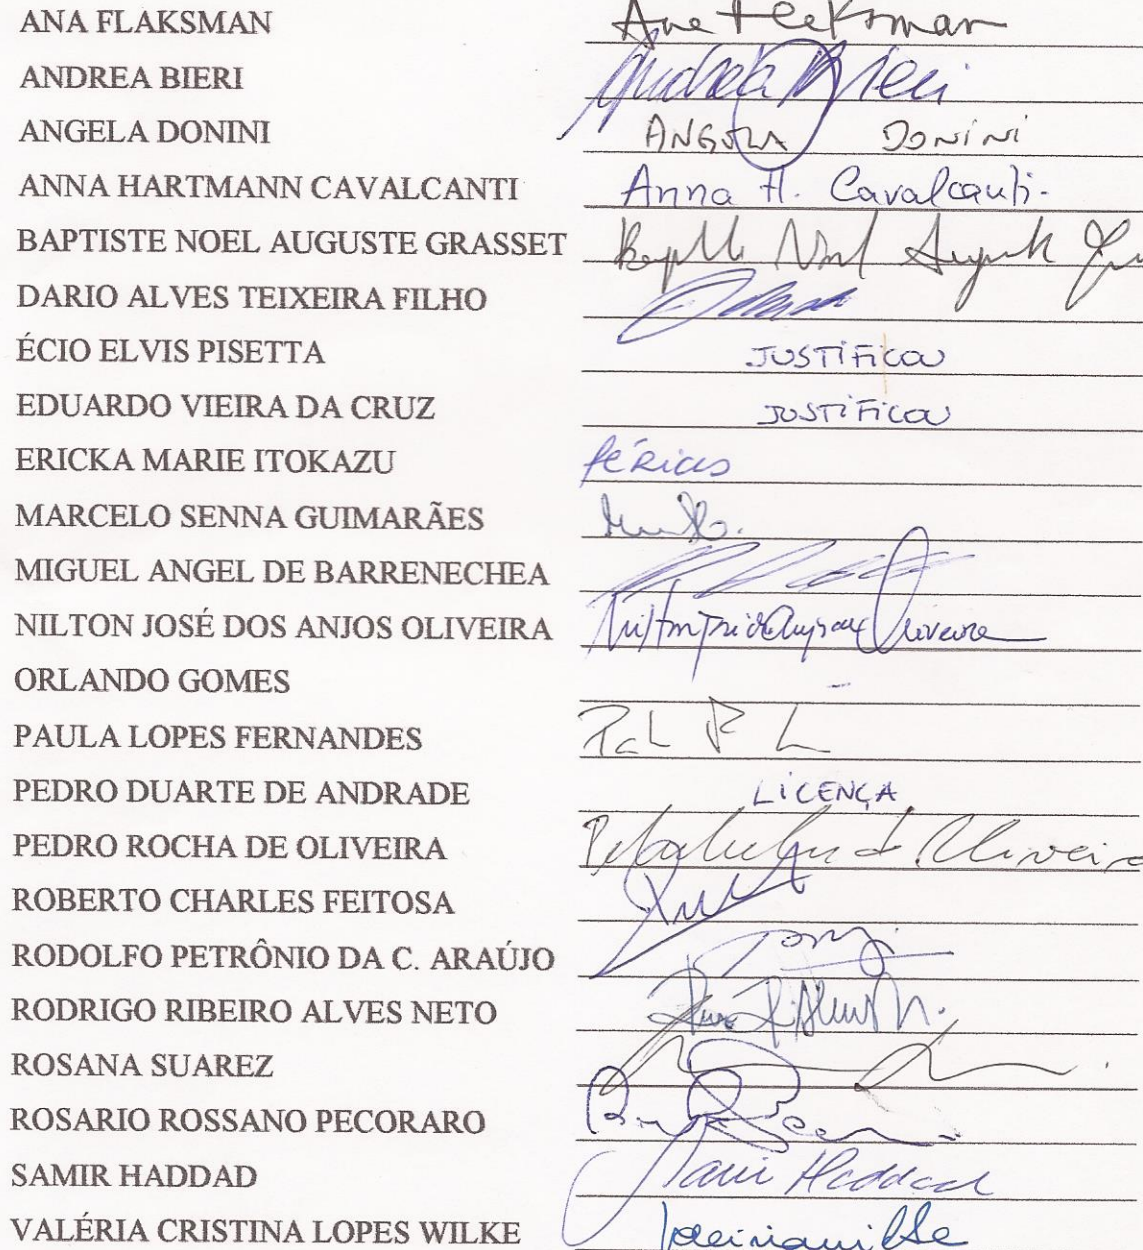 ANA FLAKSMAN Ana Flaksman
ANDREA BIERI Andrea Bieri
ANGELA DONINI ANGELA DONINI
ANNA HARTMANN CAVALCANTI Anna H. Cavalcanti.
BAPTISTE NOEL AUGUSTE GRASSET Baptiste Noel Auguste
DARIO ALVES TEIXEIRA FILHO
ÉCIO ELVIS PISETTA JUSTIFICOU
EDUARDO VIEIRA DA CRUZ JUSTIFICOU
ERICKA MARIE ITOKAZU FÉRIAS
MARCELO SENNA GUIMARÃES
MIGUEL ANGEL DE BARRENECHEA
NILTON JOSÉ DOS ANJOS OLIVEIRA Nilton José dos Anjos de Oliveira
ORLANDO GOMES
PAULA LOPES FERNANDES
PEDRO DUARTE DE ANDRADE LICENÇA
PEDRO ROCHA DE OLIVEIRA Pedro Rocha de Oliveira
ROBERTO CHARLES FEITOSA
RODOLFO PETRÔNIO DA C. ARAÚJO
RODRIGO RIBEIRO ALVES NETO
ROSANA SUAREZ
ROSARIO ROSSANO PECORARO
SAMIR HADDAD Samir Haddad
VALÉRIA CRISTINA LOPES WILKE